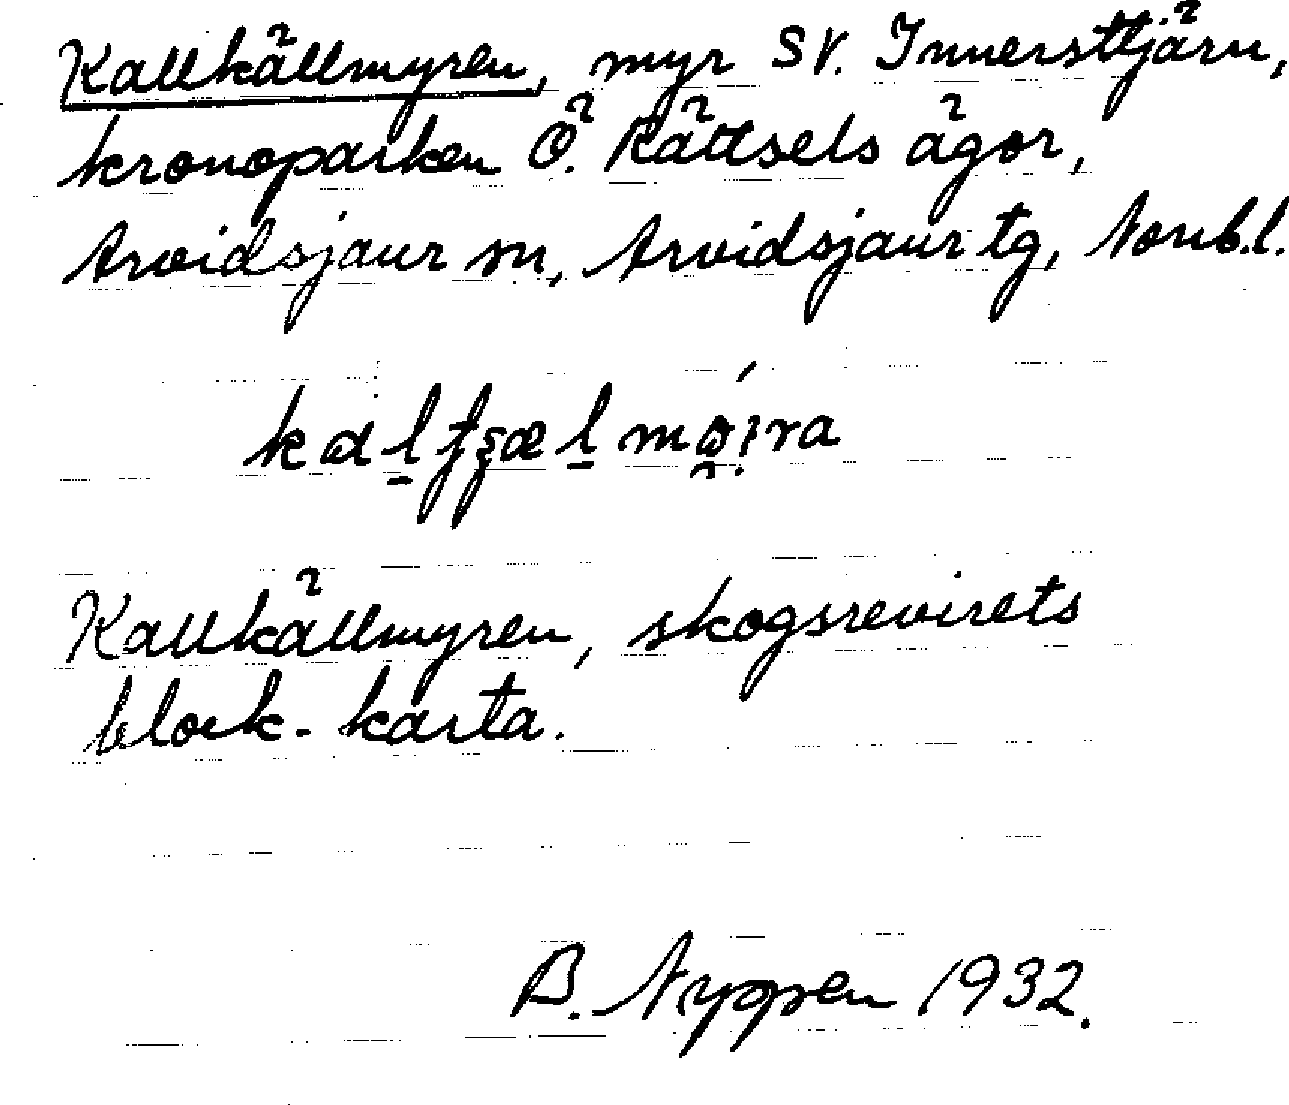 Kallkällmyren, myr SV. Innersttjärn,
kronoparken Ö. Rättsels ägor,
Arvidsjaur sn, Arvidsjaur tg, Norrb.l.
Kallkällmyren, skogsrevirets
block-karta.
B. Nyppen 1932.